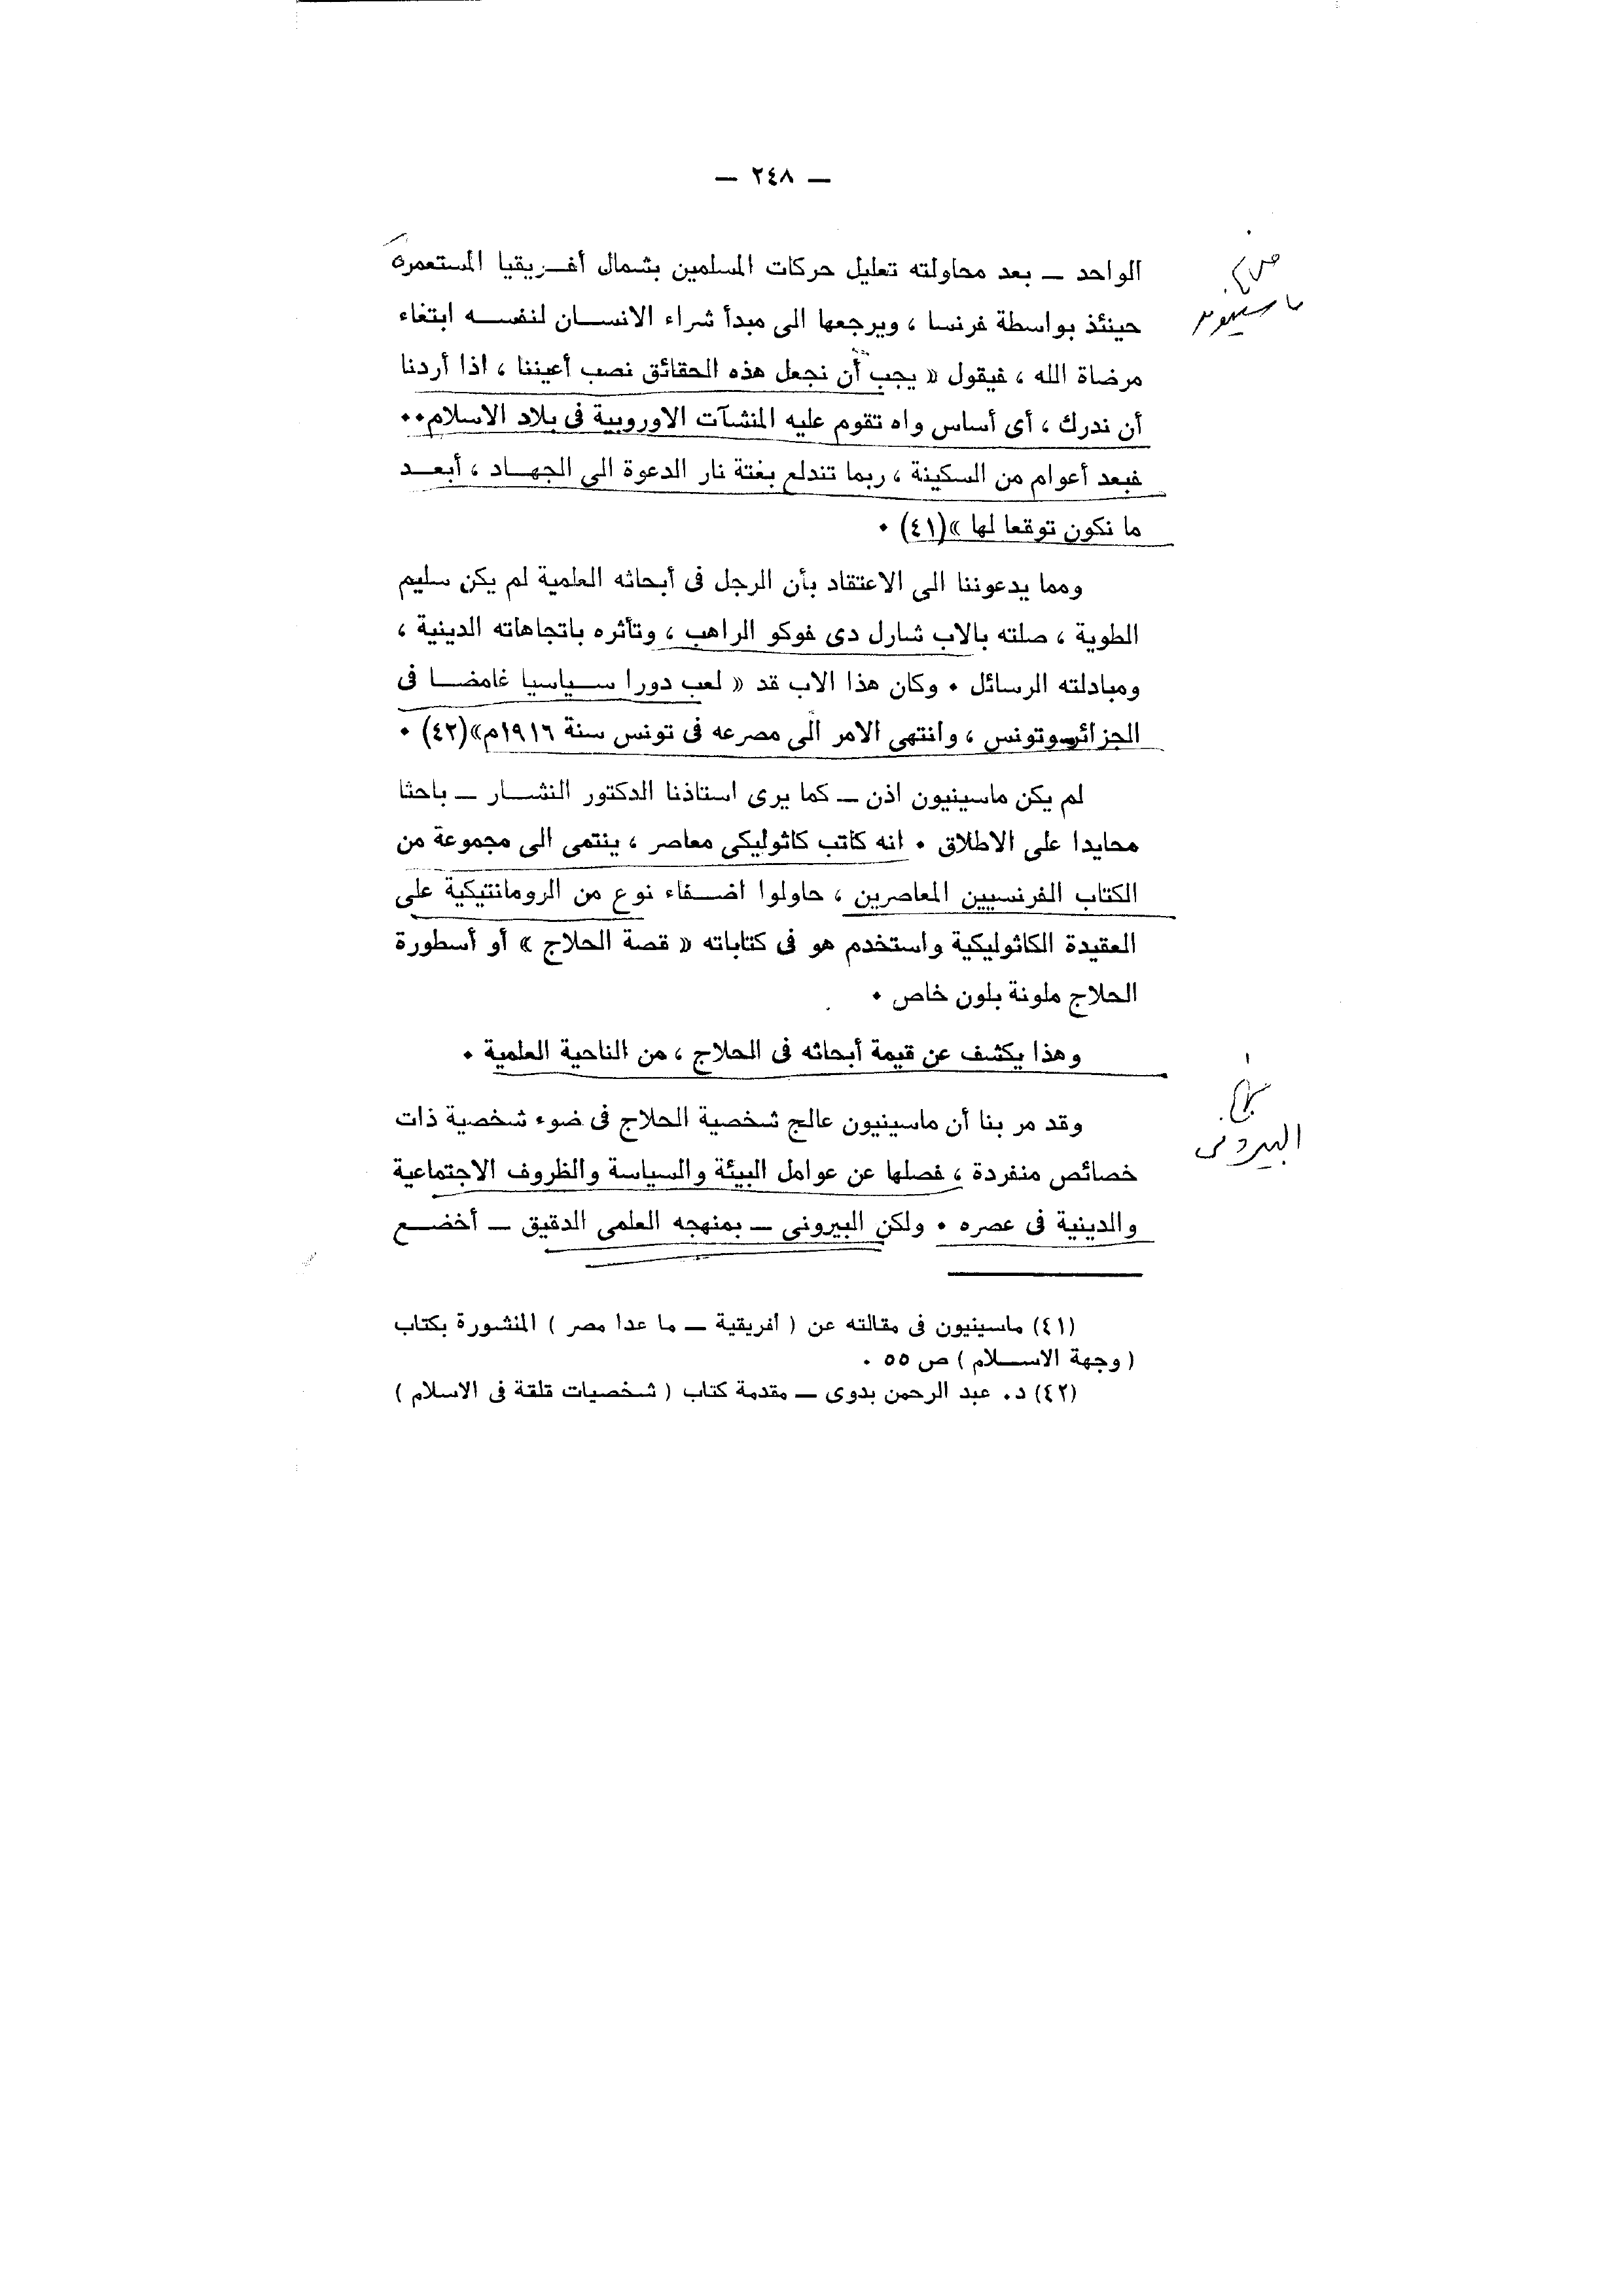 — ٢٤٨ —
الواحد — بعد محاولته تعليل حركات المسلمين بشمال أفـريقيا المستعمرة
حينئذ بواسطة فرنسا ، ويرجعها الى مبدأ شراء الانســان لنفســه ابتغاء
مرضاة الله ، فيقول « يجب أن نجعل هذه الحقائق نصب أعيننا ، اذا أردنا
أن ندرك ، أى أساس واه تقوم عليه المنشآت الاوروبية فى بلاد الاسلام٠٠
فبعد أعوام من السكينة ، ربما تندلع بغتة نار الدعوة الى الجهـاد ، أبعـد
ما نكون توقعا لها »(٤١) ٠
ومما يدعوننا الى الاعتقاد بأن الرجل فى أبحاثه العلمية لم يكن سليم
الطوية ، صلته بالاب شارل دى فوكو الراهب ، وتأثره باتجاهاته الدينية ،
ومبادلته الرسائل ٠ وكان هذا الاب قد « لعب دورا سـياسيا غامضـا فى
الجزائر وتونس ، وانتهى الامر الى مصرعه فى تونس سنة ١٩١٦م»(٤٢) ٠
لم يكن ماسينيون اذن — كما يرى استاذنا الدكتور النشـار — باحثا
محايدا على الاطلاق ٠ انه كاتب كاثوليكى معاصر ، ينتمى الى مجموعة من
الكتاب الفرنسيين المعاصرين ، حاولوا اضـفاء نوع من الرومانتيكية على
العقيدة الكاثوليكية واستخدم هو فى كتاباته « قصة الحلاج » أو أسطورة
الحلاج ملونة بلون خاص ٠
وهذا يكشف عن قيمة أبحاثه فى الحلاج ، من الناحية العلمية ٠
وقد مر بنا أن ماسينيون عالج شخصية الحلاج فى ضوء شخصية ذات
خصائص منفردة ، فصلها عن عوامل البيئة والسياسة والظروف الاجتماعية
والدينية فى عصره ٠ ولكن البيرونى — بمنهجه العلمى الدقيق — أخضـع
(٤١) ماسينيون فى مقالته عن ( أفريقية — ما عدا مصر ) المنشورة بكتاب
( وجهة الاسـلام ) ص ٥٥ ٠
(٤٢) د٠ عبد الرحمن بدوى — مقدمة كتاب ( شخصيات قلقة فى الاسلام )
ماسينيون
البيرونى